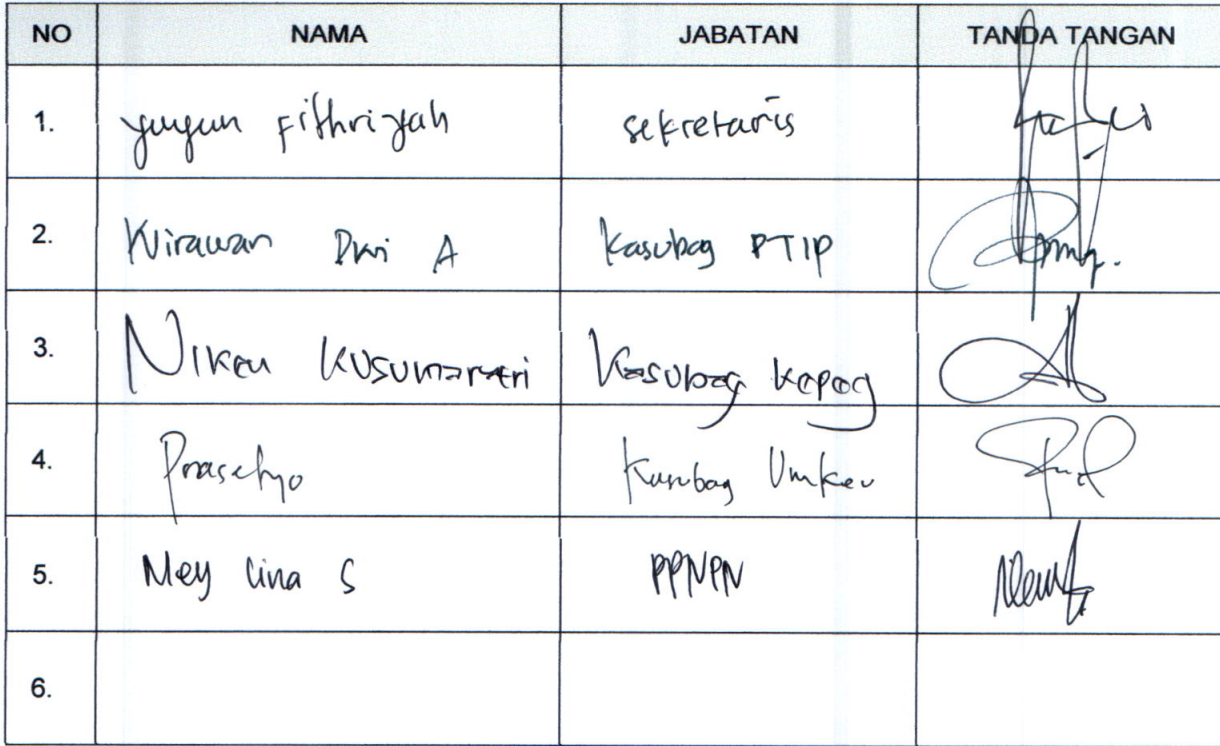 NO NAMA JABATAN TANDA TANGAN
1. yuyun fithriyah sekretaris
2. Wirawan Dwi A Kasubag PTIP
3. Niken Kusumawatri Kasubag kepeg
4. Prasetyo Kasubag Umkeu
5. Mey Lina S PPNPN
6.